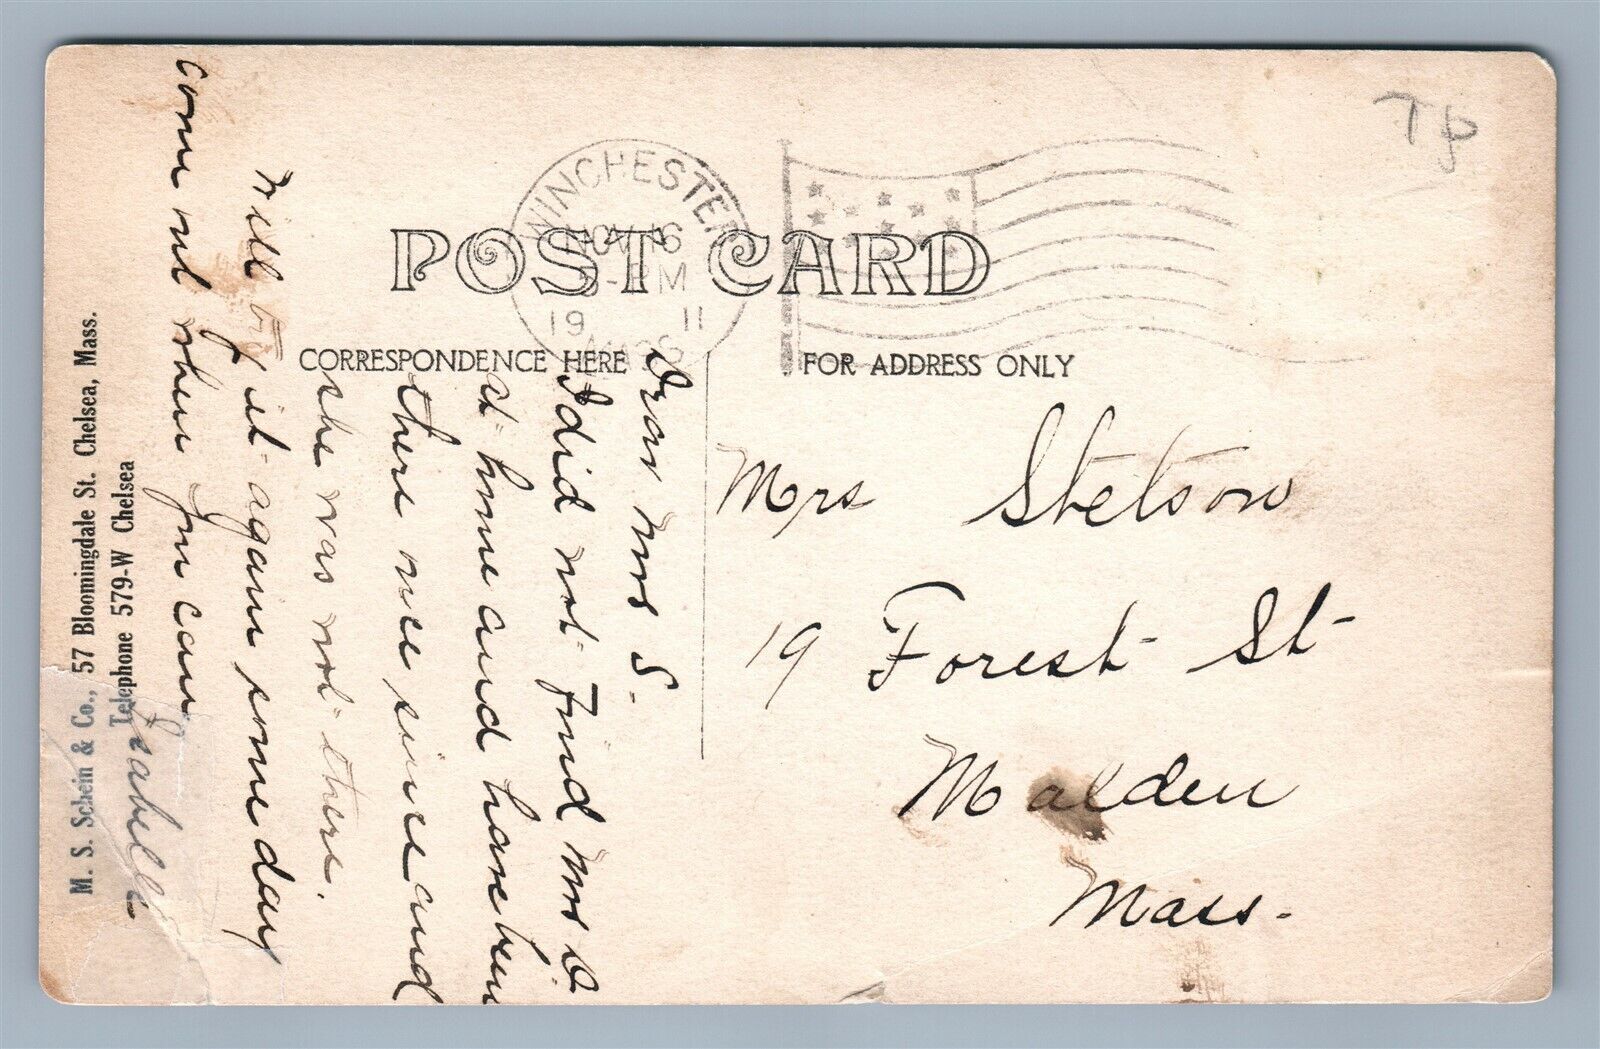 POST CARD
WINCHESTER
NOV 16
PM
19 11
MASS
CORRESPONDENCE HERE
FOR ADDRESS ONLY
Dear Mrs S.
I did not find Mrs D
at home and have been
there once since and
she was not there.
Will try it again some day
come out when you can
Isabelle
Mrs Stetson
19 Forest St
Malden
Mass.
M. S. Schein & Co., 57 Bloomingdale St. Chelsea, Mass.
Telephone 579-W Chelsea